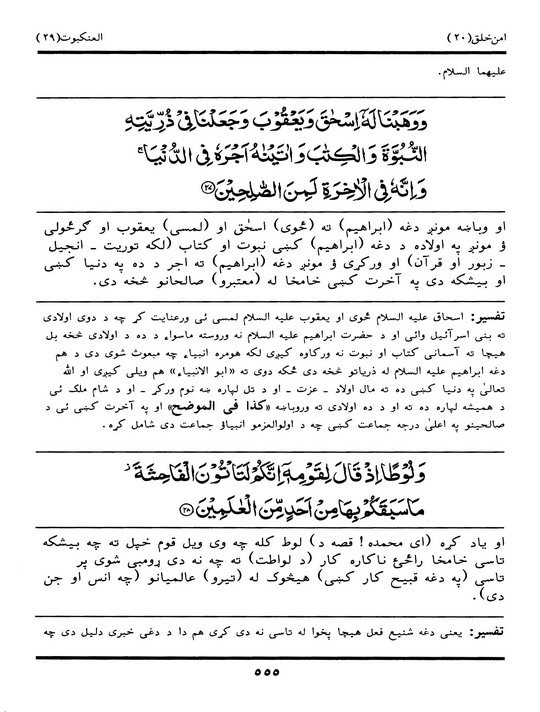 امن خلق(۲۰) العنکبوت(۲۹)
علیهما السلام.
وَوَهَبْنَا لَهٗٓ اِسْحٰقَ وَيَعْقُوْبَ وَجَعَلْنَا فِىْ ذُرِّيَّتِهِ
النُّبُوَّةَ وَالْكِتٰبَ وَاٰتَيْنٰهُ اَجْرَهٗ فِى الدُّنْيَا ۚ
وَاِنَّهٗ فِى الْاٰخِرَةِ لَمِنَ الصّٰلِحِيْنَ ﴿۲۷﴾
او وباښه مونږ دغه (ابراهیم) ته (ځوی) اسحٰق او (لمسی) یعقوب او ګرځولی
ؤ مونږ په اولاده د دغه (ابراهیم) کښی نبوت او کتاب (لکه توریت ـ انجیل
ـ زبور او قرآن) او ورکړی ؤ مونږ دغه (ابراهیم) ته اجر د ده په دنیا کښی
او بیشکه دی په آخرت کښی خامخا له (معتبرو) صالحانو څخه دی.
تفسیر: اسحاق علیه السلام ځوی او یعقوب علیه السلام لمسی ئی ورعنایت کړ چه د دوی اولادی
ته بنی اسرآئیل وائی او د حضرت ابراهیم علیه السلام نه وروسته ماسواء د ده د اولادی څخه بل
هیچا ته آسمانی کتاب او نبوت نه ورکاوه کیږی لکه هومره انبیاء چه مبعوث شوی دی د هم
دغه ابراهیم علیه السلام له ذریاتو څخه دی ځکه دوی ته «ابو الانبیاء» هم ویلی کیږی او الله
تعالیٰ په دنیا کښی ده ته مال اولاد ـ عزت ـ او د تل لپاره ښه نوم ورکړ ـ او د شام ملک ئی
د همیشه لپاره ده ته او د ده اولادی ته وروباښه «کذا فی الموضح» او په آخرت کښی ئی د
صالحینو په اعلیٰ درجه جماعت کښی چه د اولوالعزمو انبیاؤ جماعت دی شامل کړه.
وَلُوْطًا اِذْ قَالَ لِقَوْمِهٖٓ اِنَّكُمْ لَتَاْتُوْنَ الْفَاحِشَةَ
مَا سَبَقَكُمْ بِهَا مِنْ اَحَدٍ مِّنَ الْعٰلَمِيْنَ ﴿۲۸﴾
او یاد کړه (ای محمده! قصه د) لوط کله چه وی ویل قوم خپل ته چه بیشکه
تاسی خامخا راځئ ناکاره کار (د لواطت) ته چه نه دی ړومبی شوی پر
تاسی (په دغه قبیح کار کښی) هیڅوک له (تیرو) عالمیانو (چه انس او جن
دی).
تفسیر: یعنی دغه شنیع فعل هیچا پخوا له تاسی نه دی کړی هم دا د دغی خبری دلیل دی چه
۵۵۵